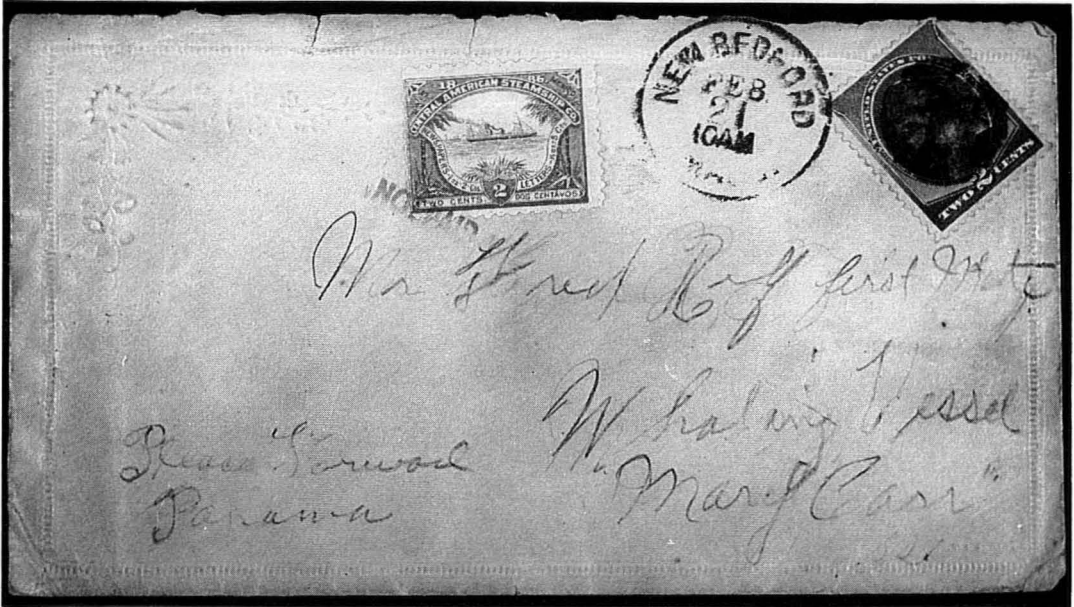 18 86
CENTRAL AMERICAN STEAMSHIP CO.
LETTERS
TWO CENTS. 2 DOS CENTAVOS
NEW BEDFORD
FEB
21
10AM
UNITED STATES
TWO 2 CENTS
Mr Fred first Mate
Whaling Vessel
"Mary Carr"
Please Forward
Panama